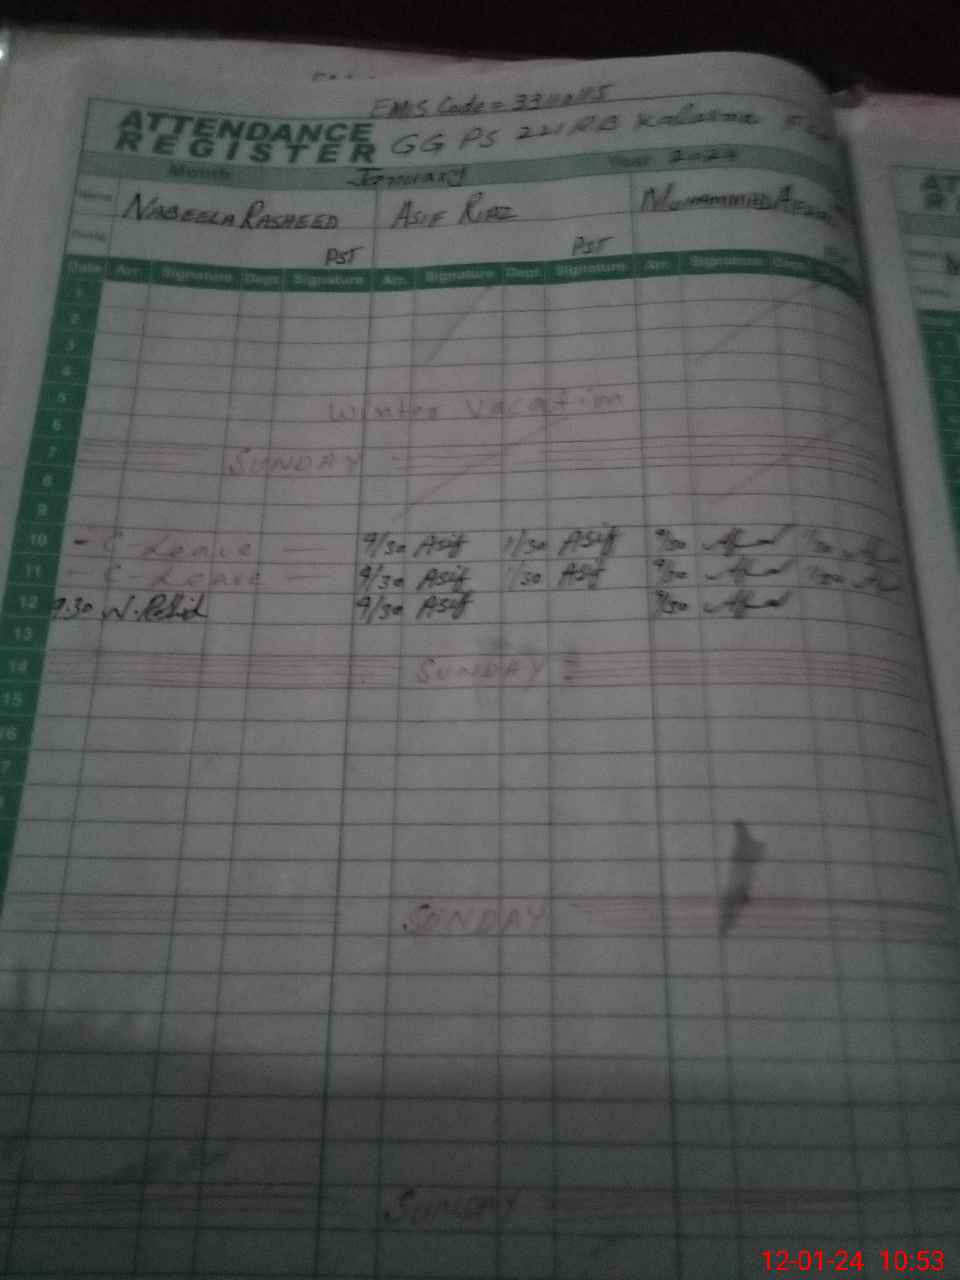 EMIS Code =
ATTENDANCE REGISTER
GG PS 221 RB
Month January Year 2024
Name NABEELA RASHEED ASIF RIAZ MUHAMMAD
PST PST
Date Arr. Signature Dept. Signature Arr. Signature Dept. Signature Arr. Signature Dept.
1
2
3
4
5 Winter Vacation
6
7 SUNDAY
8
9
10 - C-Leave - 9/30 Asif 1/30 Asif 9/30
11 - C-Leave - 9/30 Asif 1/30 Asif 9/30
12 9.30 9/30 Asif 9/30
13
14 SUNDAY
15
16
7
SUNDAY
SUNDAY
12-01-24 10:53